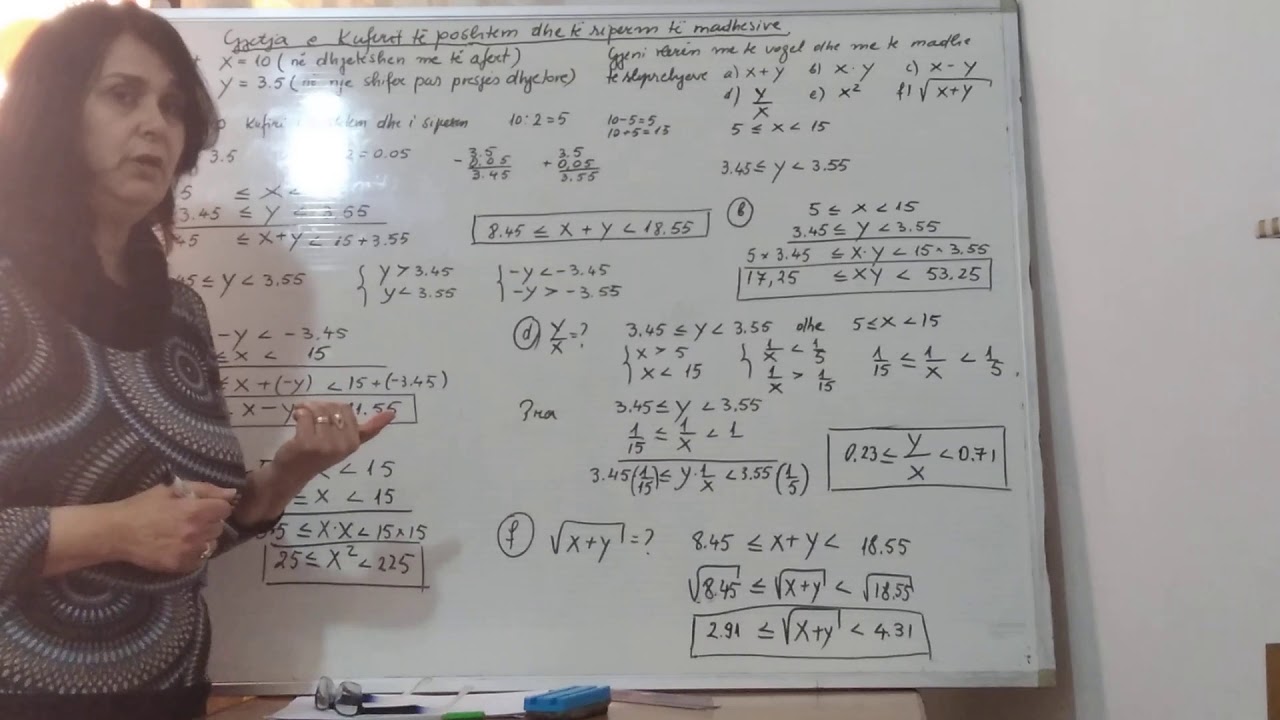 Gjetja e Kufirit të poshtem dhe të siperm të madhesive
X = 10 (në dhjetëshen me të afert)
Y = 3.5 (në nje shifer pas presjes dhjetore)
Gjeni vleren me te vogel dhe me te madhe
të shprehjeve a) x + y b) x · y c) x − y
d) y/x e) x² f) √x+y
Kufiri dhe i siperm 10:2=5
10-5=5
10+5=15
5 ≤ x < 15
3.5 2=0.05
- 3.5
0.05
3.45
+ 3.5
0.05
3.55
3.45 ≤ y < 3.55
5 ≤ X <
3.45 ≤ Y < 3.55
45 ≤ X+Y < 15+3.55
8.45 ≤ X + Y < 18.55
b 5 ≤ x < 15
3.45 ≤ y < 3.55
5 × 3.45 ≤ X·Y < 15 × 3.55
17,25 ≤ XY < 53.25
45 ≤ Y < 3.55
{ Y > 3.45
y < 3.55
{ −Y < −3.45
−Y > −3.55
−Y < −3.45
≤ X < 15
≤ X + (−Y) < 15 + (−3.45)
X − Y 11.55
d Y/X = ? 3.45 ≤ y < 3.55 dhe 5 ≤ X < 15
{ x > 5
x < 15
{ 1/x < 1/5
1/x > 1/15
1/15 ≤ 1/x < 1/5.
3.45 ≤ Y < 3.55
1/15 ≤ 1/x < 1
3.45(1/15) ≤ Y · 1/x < 3.55(1/5)
0.23 ≤ Y/X < 0.71
X < 15
≤ X < 15
5 ≤ X·X < 15×15
25 ≤ X² < 225
f √x+y = ? 8.45 ≤ x+y < 18.55
√8.45 ≤ √x+y < √18.55
2.91 ≤ √x+y < 4.31